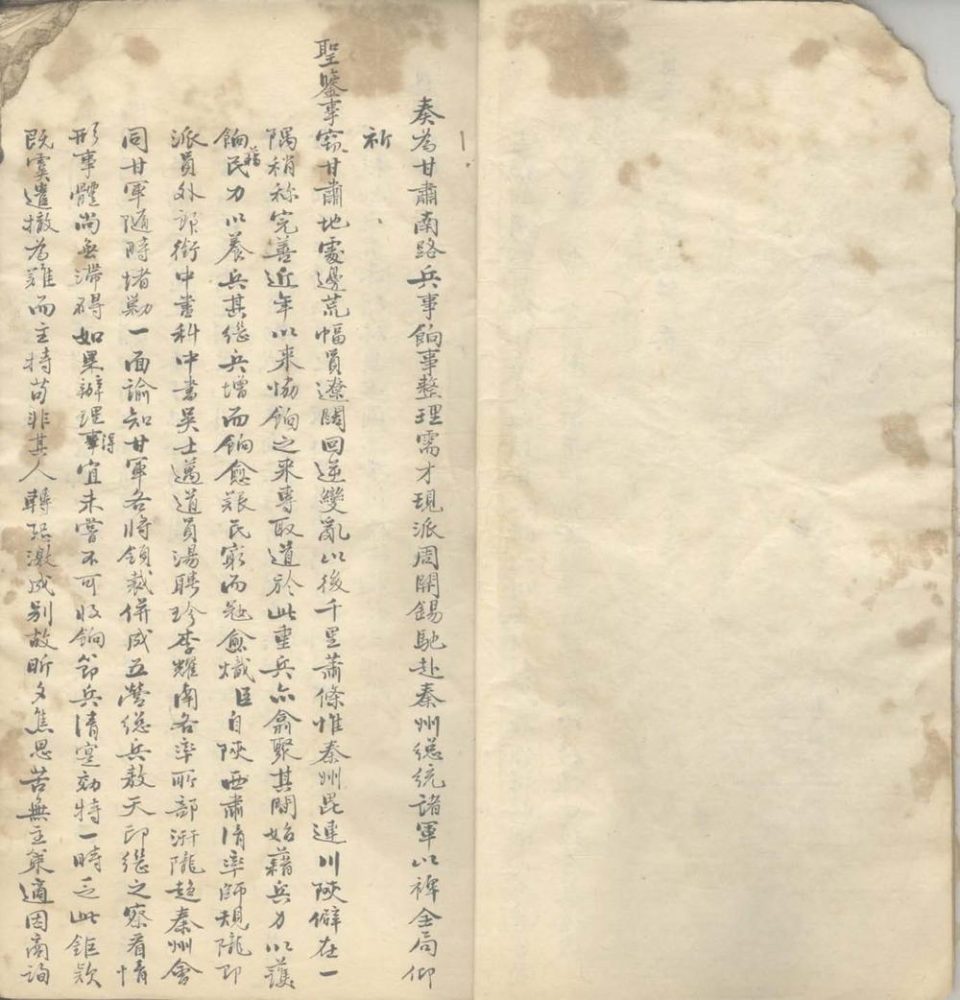 奏為甘肅南路兵事餉事整理需才現派周開錫馳赴秦州總統諸軍以裨全局仰
祈
聖鑒事竊甘肅地處邊荒幅員遼闊回逆變亂以後千里蕭條惟秦州毘連川陝僻在一
隅稍称完善近年以来協餉之来專取道於此重兵亦翕聚其間始藉兵力以護
餉藉民力以養兵其継兵增而餉愈艱民窮而匪愈熾臣自陝西肅清率師規隴即
派員外郎銜中書科中書吳士邁道員湯聘珍李耀南各率所部汧隴趋秦州會
同甘軍隨時堵勦一面諭知甘軍各將領裁併成五營總兵敖天印継之察看情
形事體尚無滯碍如果辦理得宜未嘗不可收餉節兵清寔効特一時乏此鉅款
既虞遣撤為難而主持苟非其人轉恐激成别故昕夕焦思苦無主策適因商詢